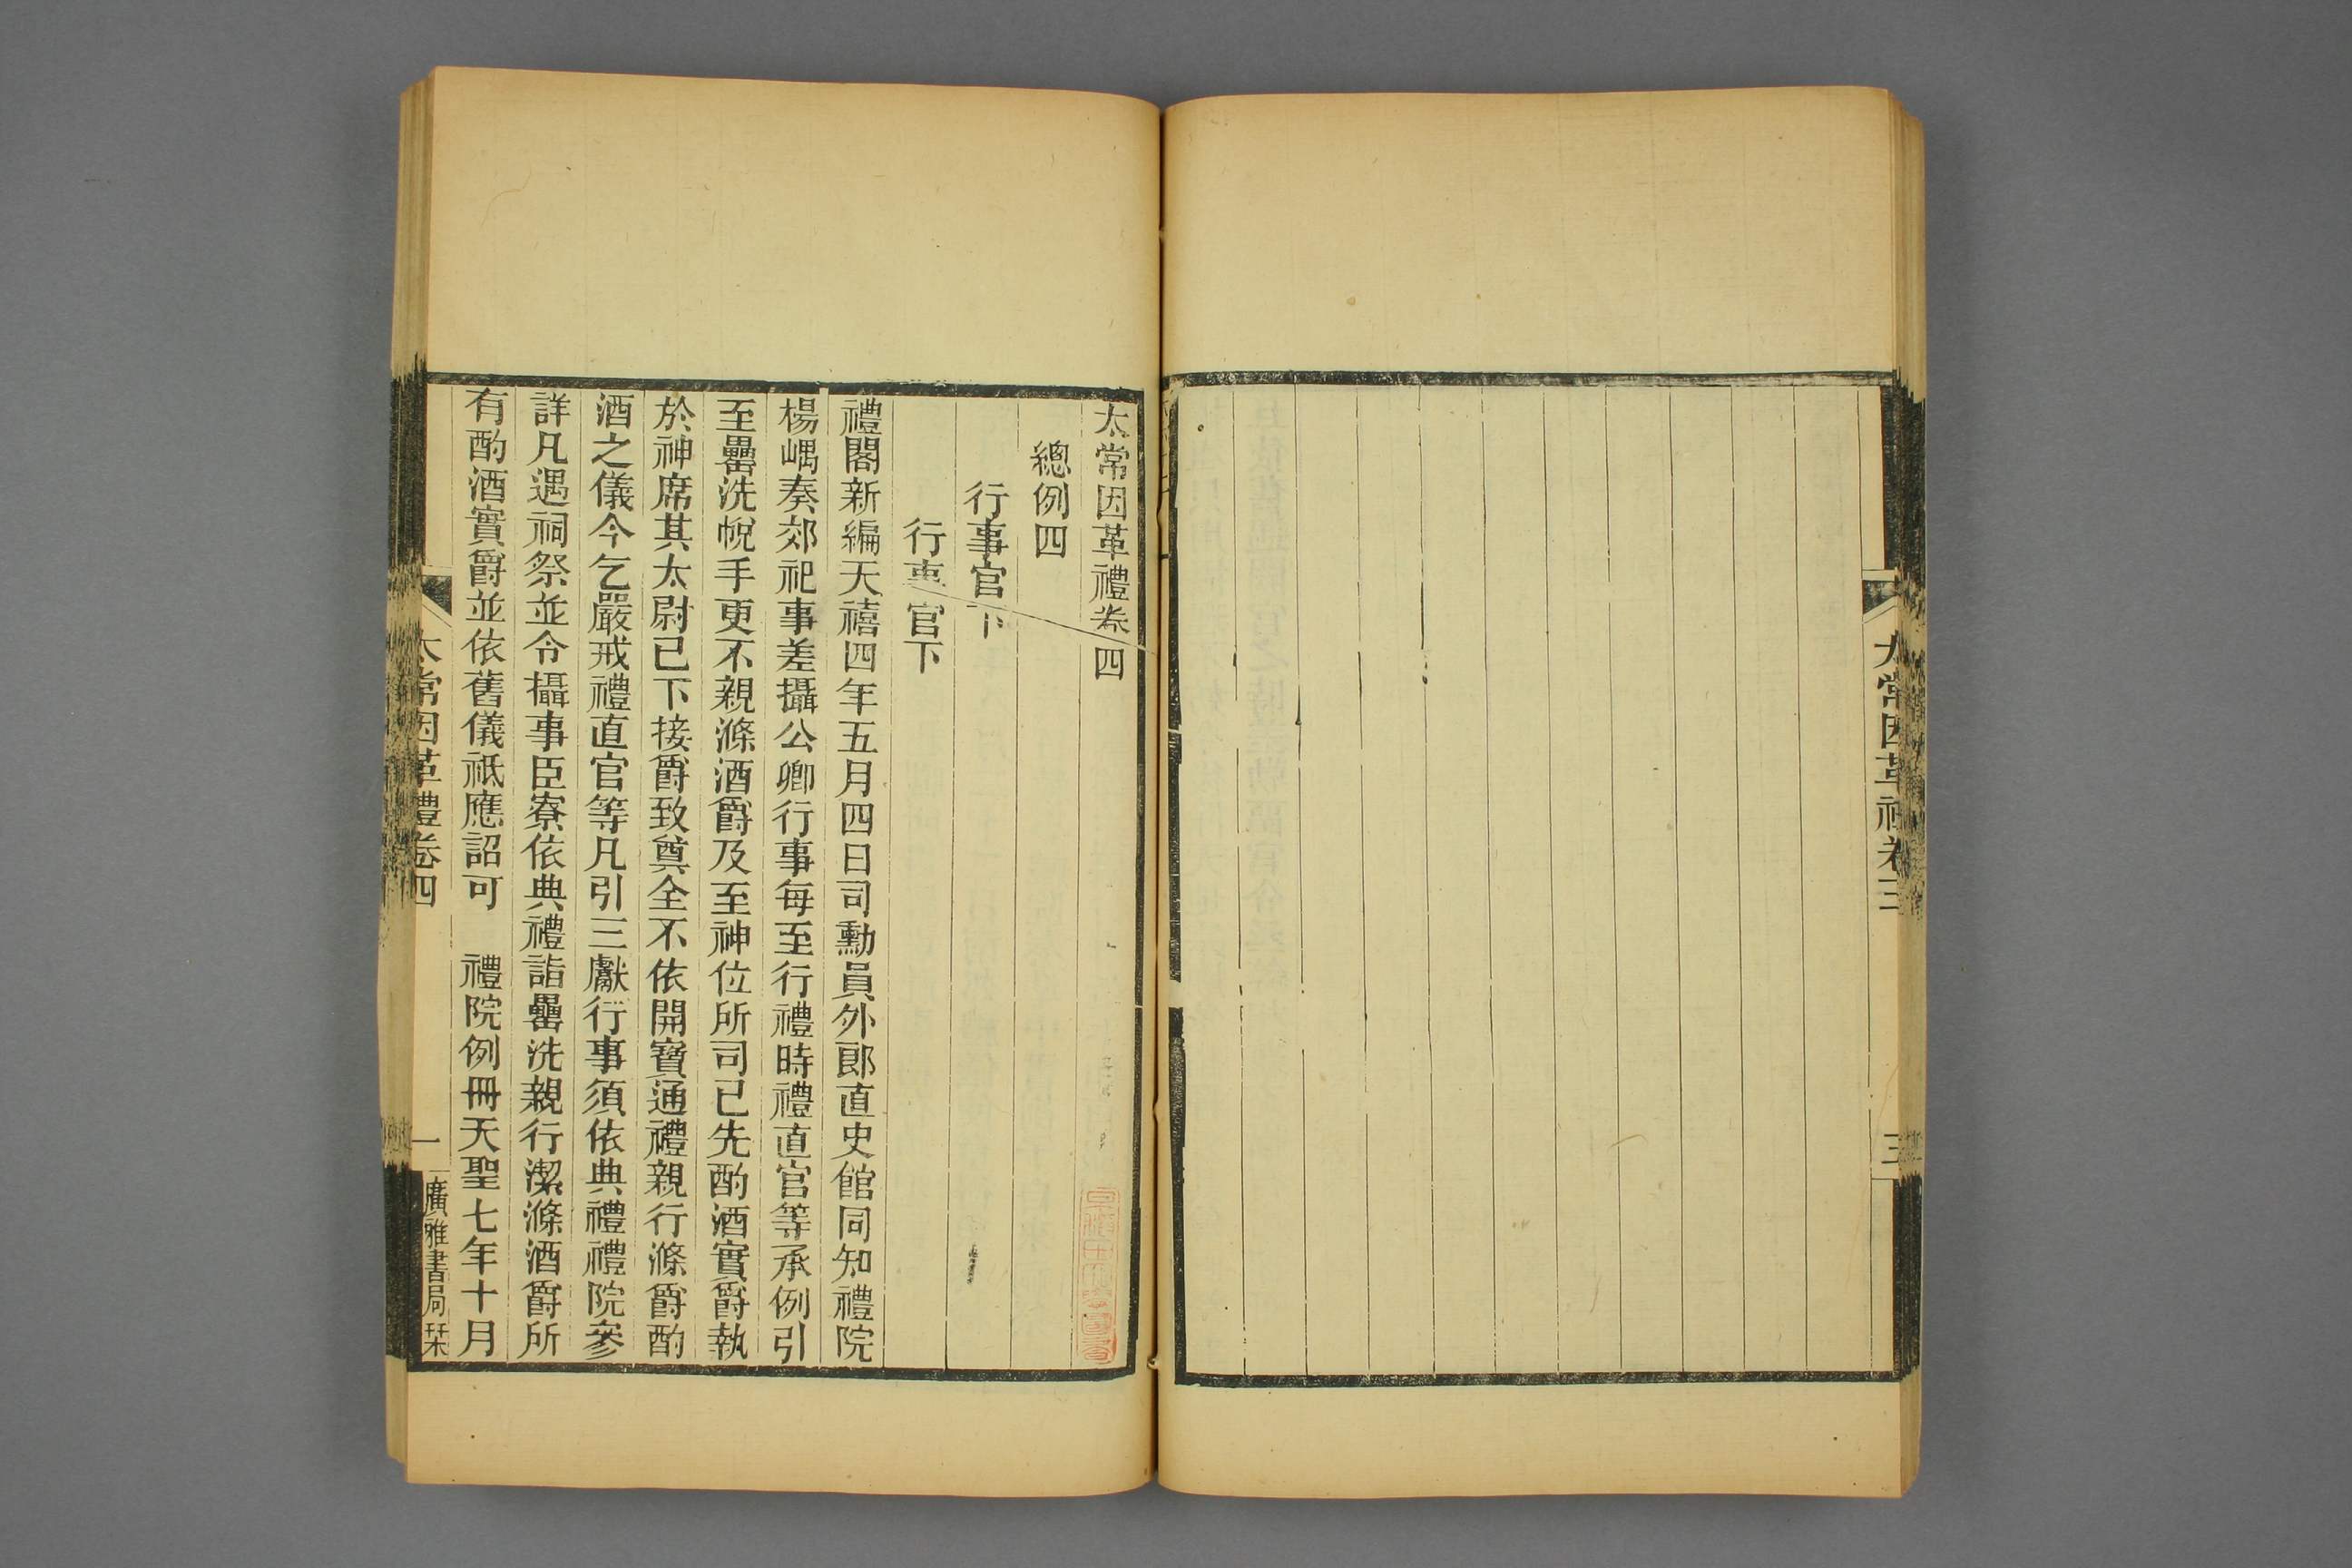 太常因革禮卷三
三
太常因革禮卷四
總例四
行事官下
行事官下
禮閣新編天禧四年五月四日司勳員外郎直史館同知禮院
楊嵎奏郊祀事差攝公卿行事每至行禮時禮直官等承例引
至罍洗帨手更不親滌酒爵及至神位所司已先酌酒實爵執
於神席其太尉已下接爵致奠全不依開寶通禮親行滌爵酌
酒之儀今乞嚴戒禮直官等凡引三獻行事須依典禮禮院參
詳凡遇祠祭並令攝事臣寮依典禮詣罍洗親行潔滌酒爵所
有酌酒實爵並依舊儀祇應詔可　禮院例冊天聖七年十月
太常因革禮卷四
一
廣雅書局栞